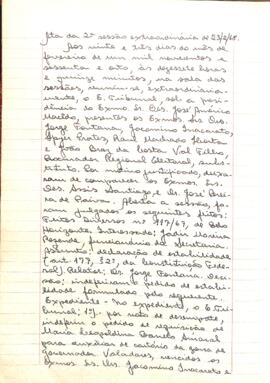 Ata da 2ª sessão extraordinária de 23/2/68.
Aos vinte e três dias do mês de
fevereiro de um mil novecentos e
sessenta e oito, às dezessete horas
e quinze minutos, na sala das
sessões, reuniu-se, extraordinaria-
mente, o E. Tribunal, sob a presi-
dência do Exmo. Sr. Des. José Antônio
presentes os Exmos. Srs. Drs.
Jorge Fontana, Jacomino Inacarato,
Lopes Prates, Raul Machado Horta
e João Braz da Costa Val Filho,
Procurador Regional Eleitoral, subs-
tituto. Por motivo justificado, deixa-
ram de comparecer os Exmos. Srs.
Des. Assis Santiago e Dr. José Perei-
ra de Paiva. Aberta a sessão, fo-
ram julgados os seguintes feitos:
Feitos Diversos nº 717/67, de Belo
Horizonte. Interessado: Jadir Moreira
Resende, funcionário da Secretaria.
Assunto: declaração de estabilidade
(art. 177, § 2º, da Constituição Fede-
ral). Relator: Dr. Jorge Fontana. Deci-
são: indeferiram o pedido de estabi-
lidade formulado pelo requerente.
Expediente - No expediente, o E. Tri-
bunal: 1) - por voto de desempate,
indeferiu o pedido de requisição de
Maria Leopoldina Daniels Amaral
para auxiliar do cartório da zona de
Governador Valadares, vencidos os
Exmos. Srs. Drs. Jacomino Inacarato e